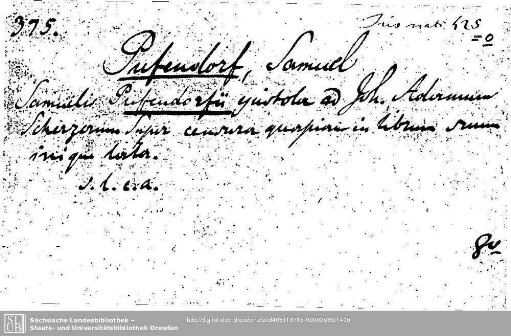 375.
Jus nat. 425
Pufendorf, Samuel
Samuelis Pufendorfii epistola ad Joh. Adamum
Scherzerum super censura quapiam in librum suum
inique lata.
s. l. e. a.
8v
Sächsische Landesbibliothek –
Staats- und Universitätsbibliothek Dresden